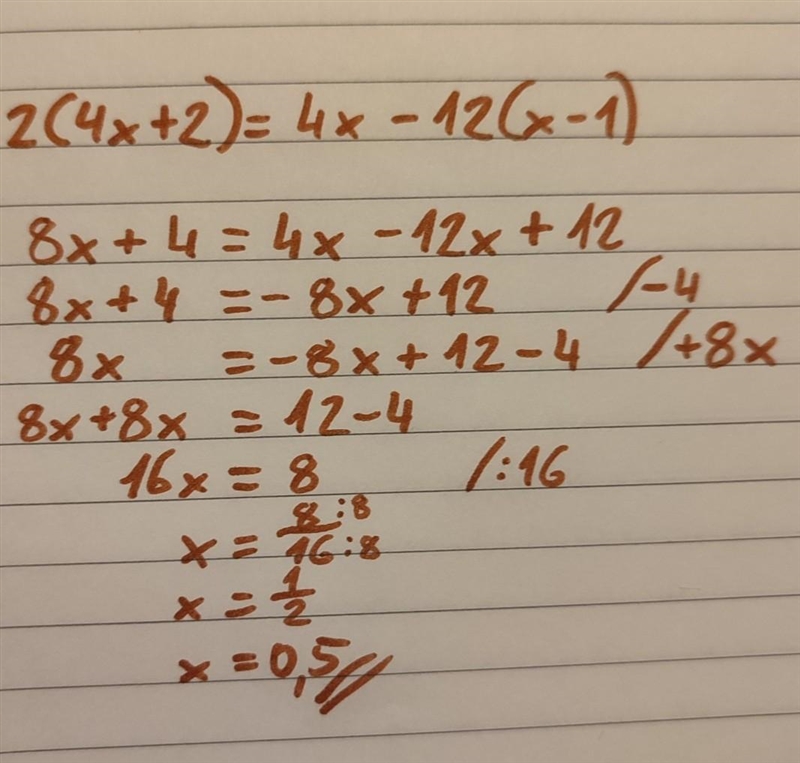 2(4x+2)= 4x - 12(x-1)
8x + 4 = 4x - 12x + 12
8x + 4 = - 8x + 12 /-4
8x = - 8x + 12 - 4 /+8x
8x + 8x = 12 - 4
16x = 8 /:16
x = 8:8/16:8
x = 1/2
x = 0,5//